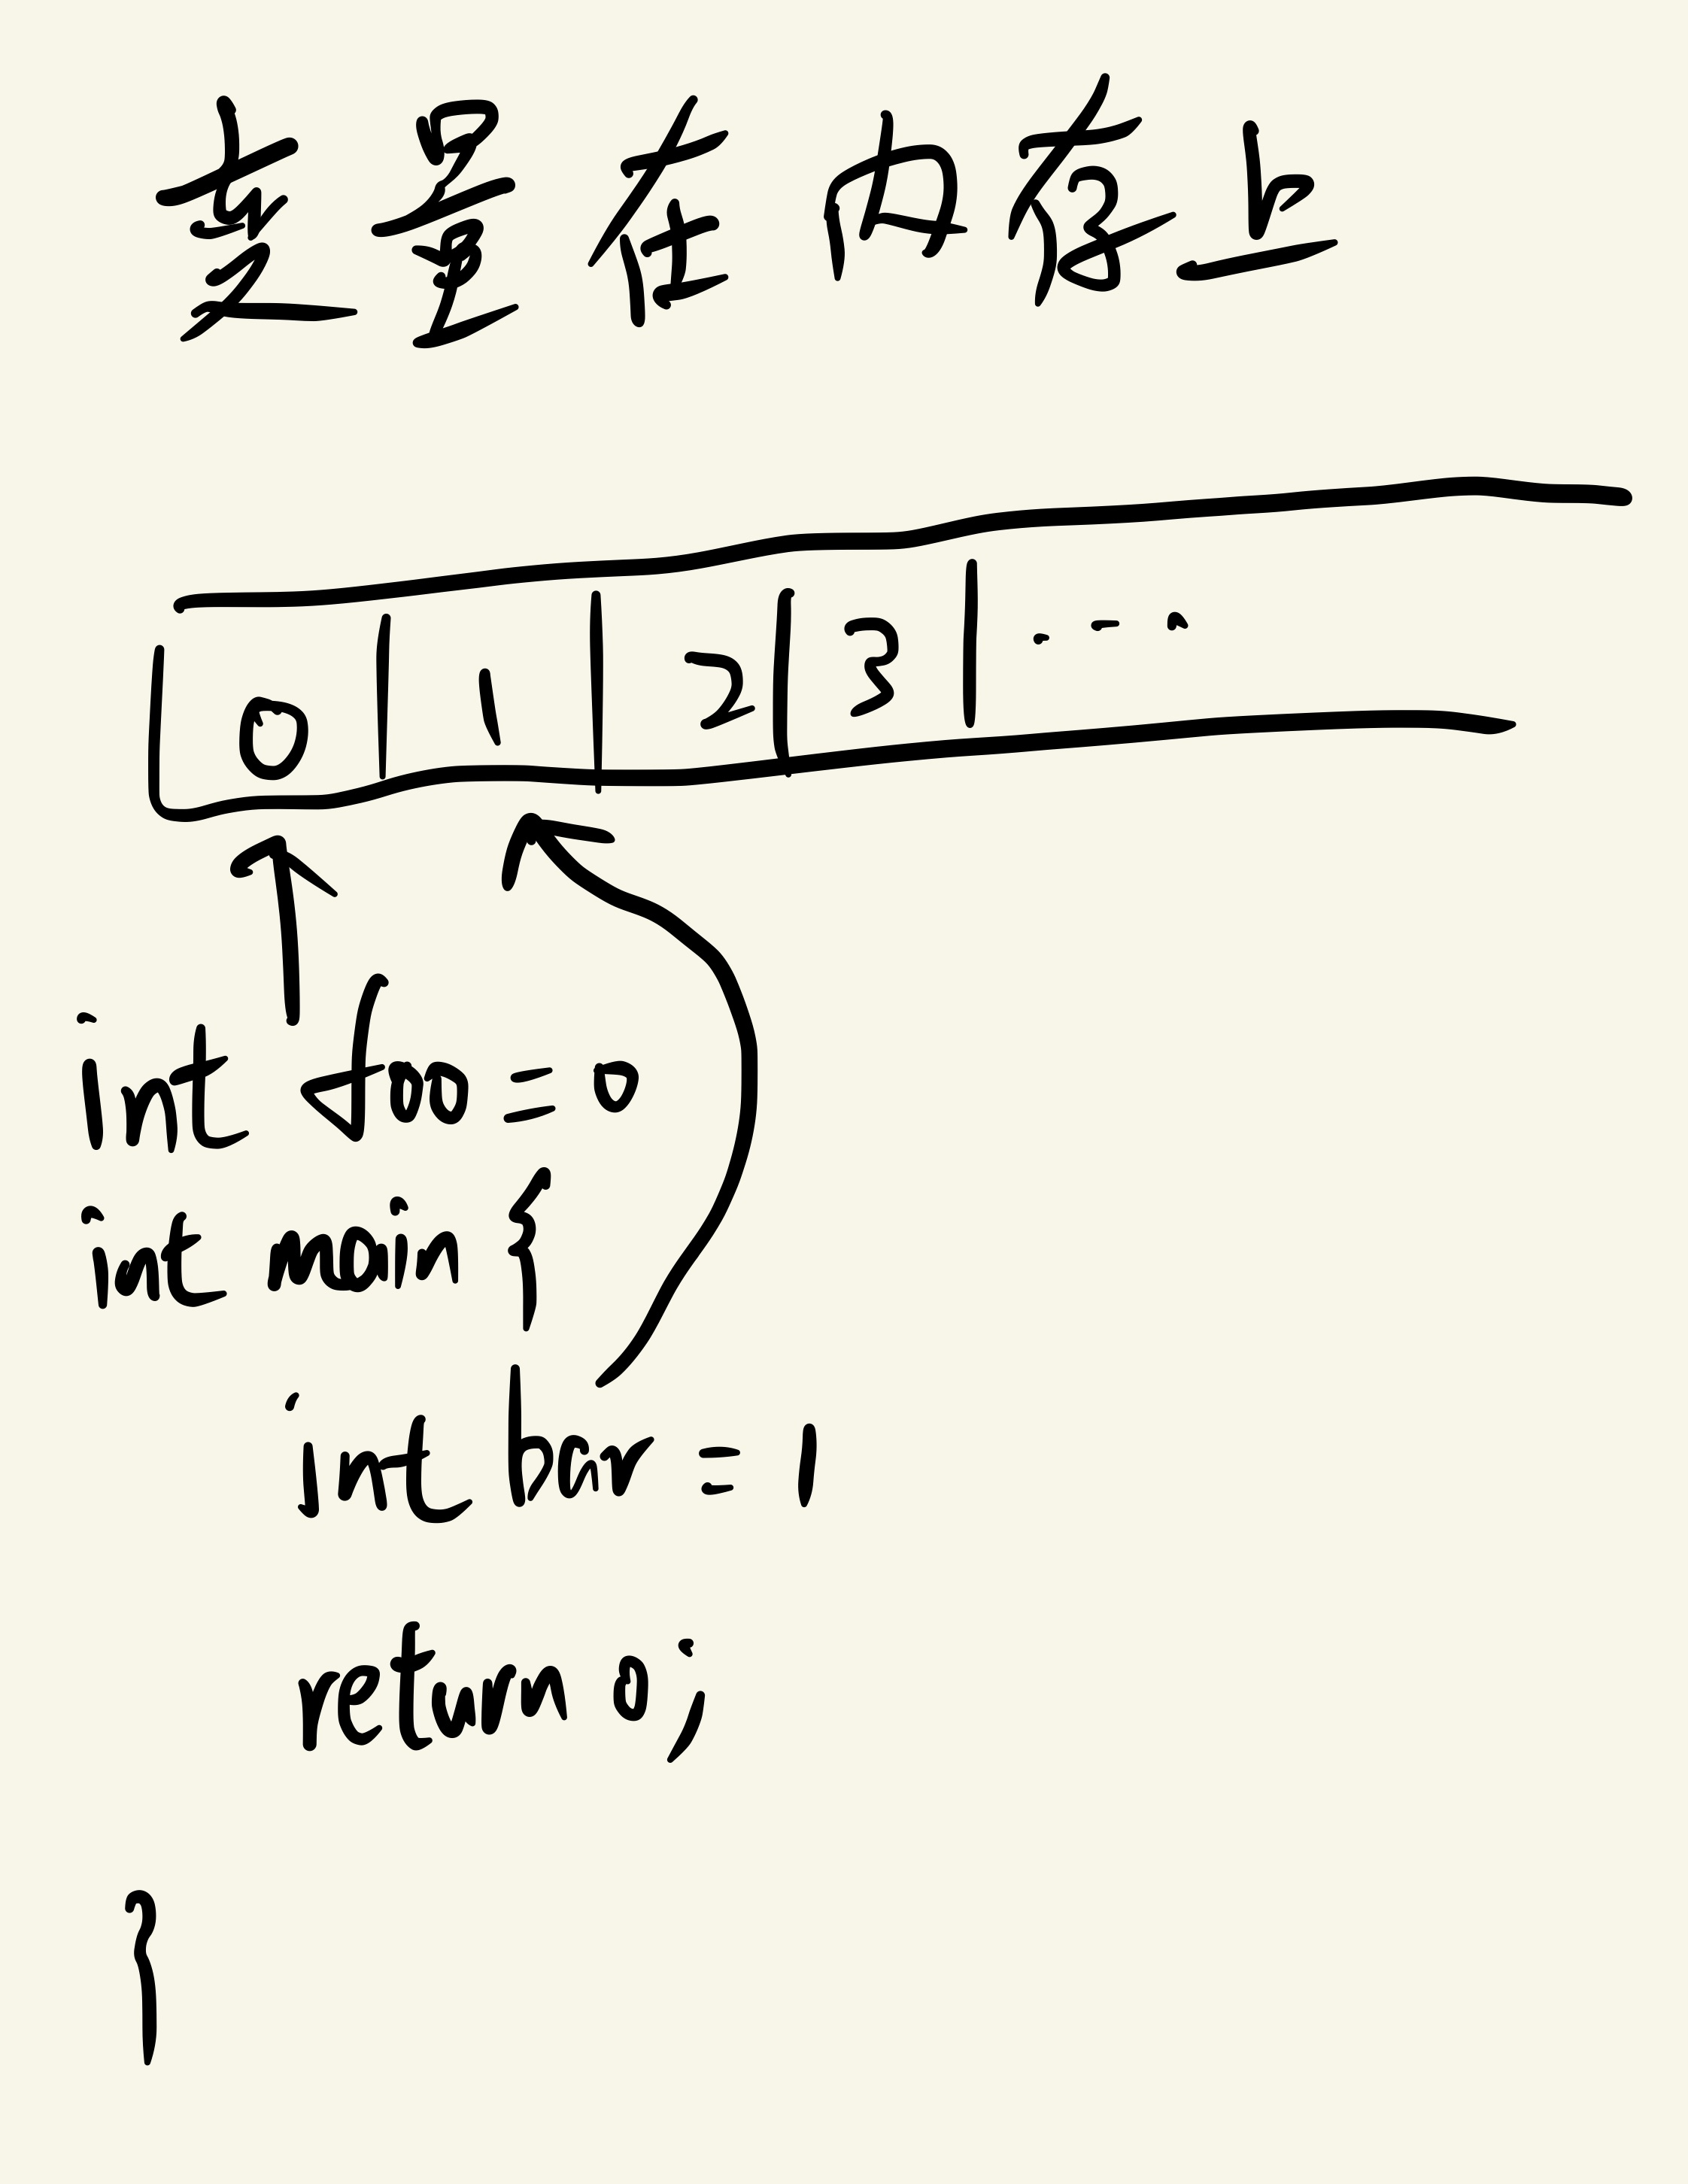 变量在内存上
0 1 2 3 ...
int foo = 0
int main {
int bar = 1
return 0;
}